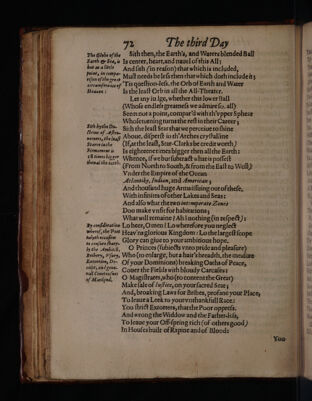 72
The third Day
Sith then, the Earth's, and Waters blended Ball
Is center, heart, and navel of this All;
And sith (in reason) that which is included,
Must needs be less then that which doth include it;
'Tis question-less, the Orb of Earth and Water
Is the least Orb in all the All-Theater.
Let any iudge, whether this lower Ball
(Whose endles greatnes we admire so, all)
Seem not a point, compar'd with th'vpper Sphere
Whose turning turns the rest in their Career;
Sith the least Star that we perceiue to shine
Aboue, disperst in th'Arches crystalline
(If, at the least, Star-Clarks be credit worth)
Is eighteene times bigger then all the Earth:
Whence, if we but substract what is possest
(From North to South, & from the East to West)
Vnder the Empire of the Ocean
Atlantike, Indian, and American;
And thousand huge Arms issuing out of these,
With infinites of other Lakes and Seas:
And also what the two intemperate Zones
Doo make vnfit for habitations;
What will remaine? Ah! nothing (in respect):
Lo heer, O men! Lo wherefore you neglect
Heav'ns glorious Kingdom: Lo the largest scope
Glory can giue to your ambitious hope.
O Princes (subiects vnto pride and pleasure)
Who (to enlarge, but a hair's breadth, the measure
Of your Dominions) breaking Oaths of Peace,
Couer the Fields with bloudy Carcases:
O Magistrates, who (to content the Great)
Make sale of Iustice, on your sacred Seat;
And, breaking Laws for Bribes, profane your Place,
To leaue a Leek to your vnthankfull Race:
You strict Extorters, that the Poor oppress,
And wrong the Widdow and the Father-less,
To leaue your Off-spring rich (of others good)
In Houses built of Rapine and of Blood:
You
The Globe of the
Earth & Sea, is
but as a little
point, in compa-
rison of the great
circumference of
Heauen:
By consideration
whereof, the Poet
taketh occasion
to censure sharp-
ly the Ambitiō,
Bribery, Vsury,
Extortion, De-
ceipt, and gene-
ral Couetousnes
of Mankind.